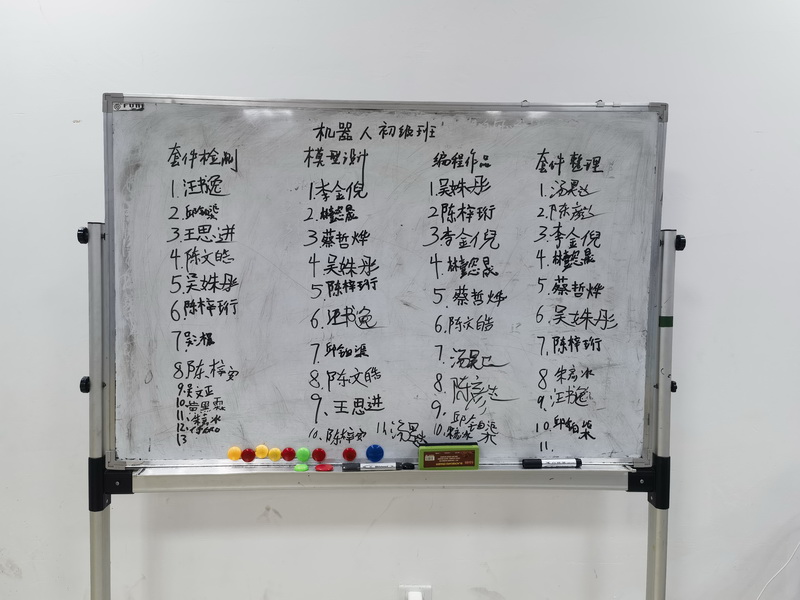 机器人初级班
套件检测
1.汪书逸
2.邱铂柒
3.王思进
4.陈文皓
5.吴姝彤
6.陈梓珩
7.吴
8.陈梓
9.吴文正
10.苗里霖
11.朱高冰
12.
13
模型设计
1.李金倪
2.林懿晟
3.蔡哲烨
4.吴姝彤
5.陈梓珩
6.汪书逸
7.邱铂柒
8.陈文皓
9.王思进
10.陈梓
11.汤
编程作品
1.吴姝彤
2.陈梓珩
3.李金倪
4.林懿晟
5.蔡哲烨
6.陈文皓
7.汤
8.陈
9.邱铂柒
10.朱高冰
套件整理
1.汤
2.陈
3.李金倪
4.林懿晟
5.蔡哲烨
6.吴姝彤
7.陈梓珩
8.朱高冰
9.汪书逸
10.邱铂柒
11.